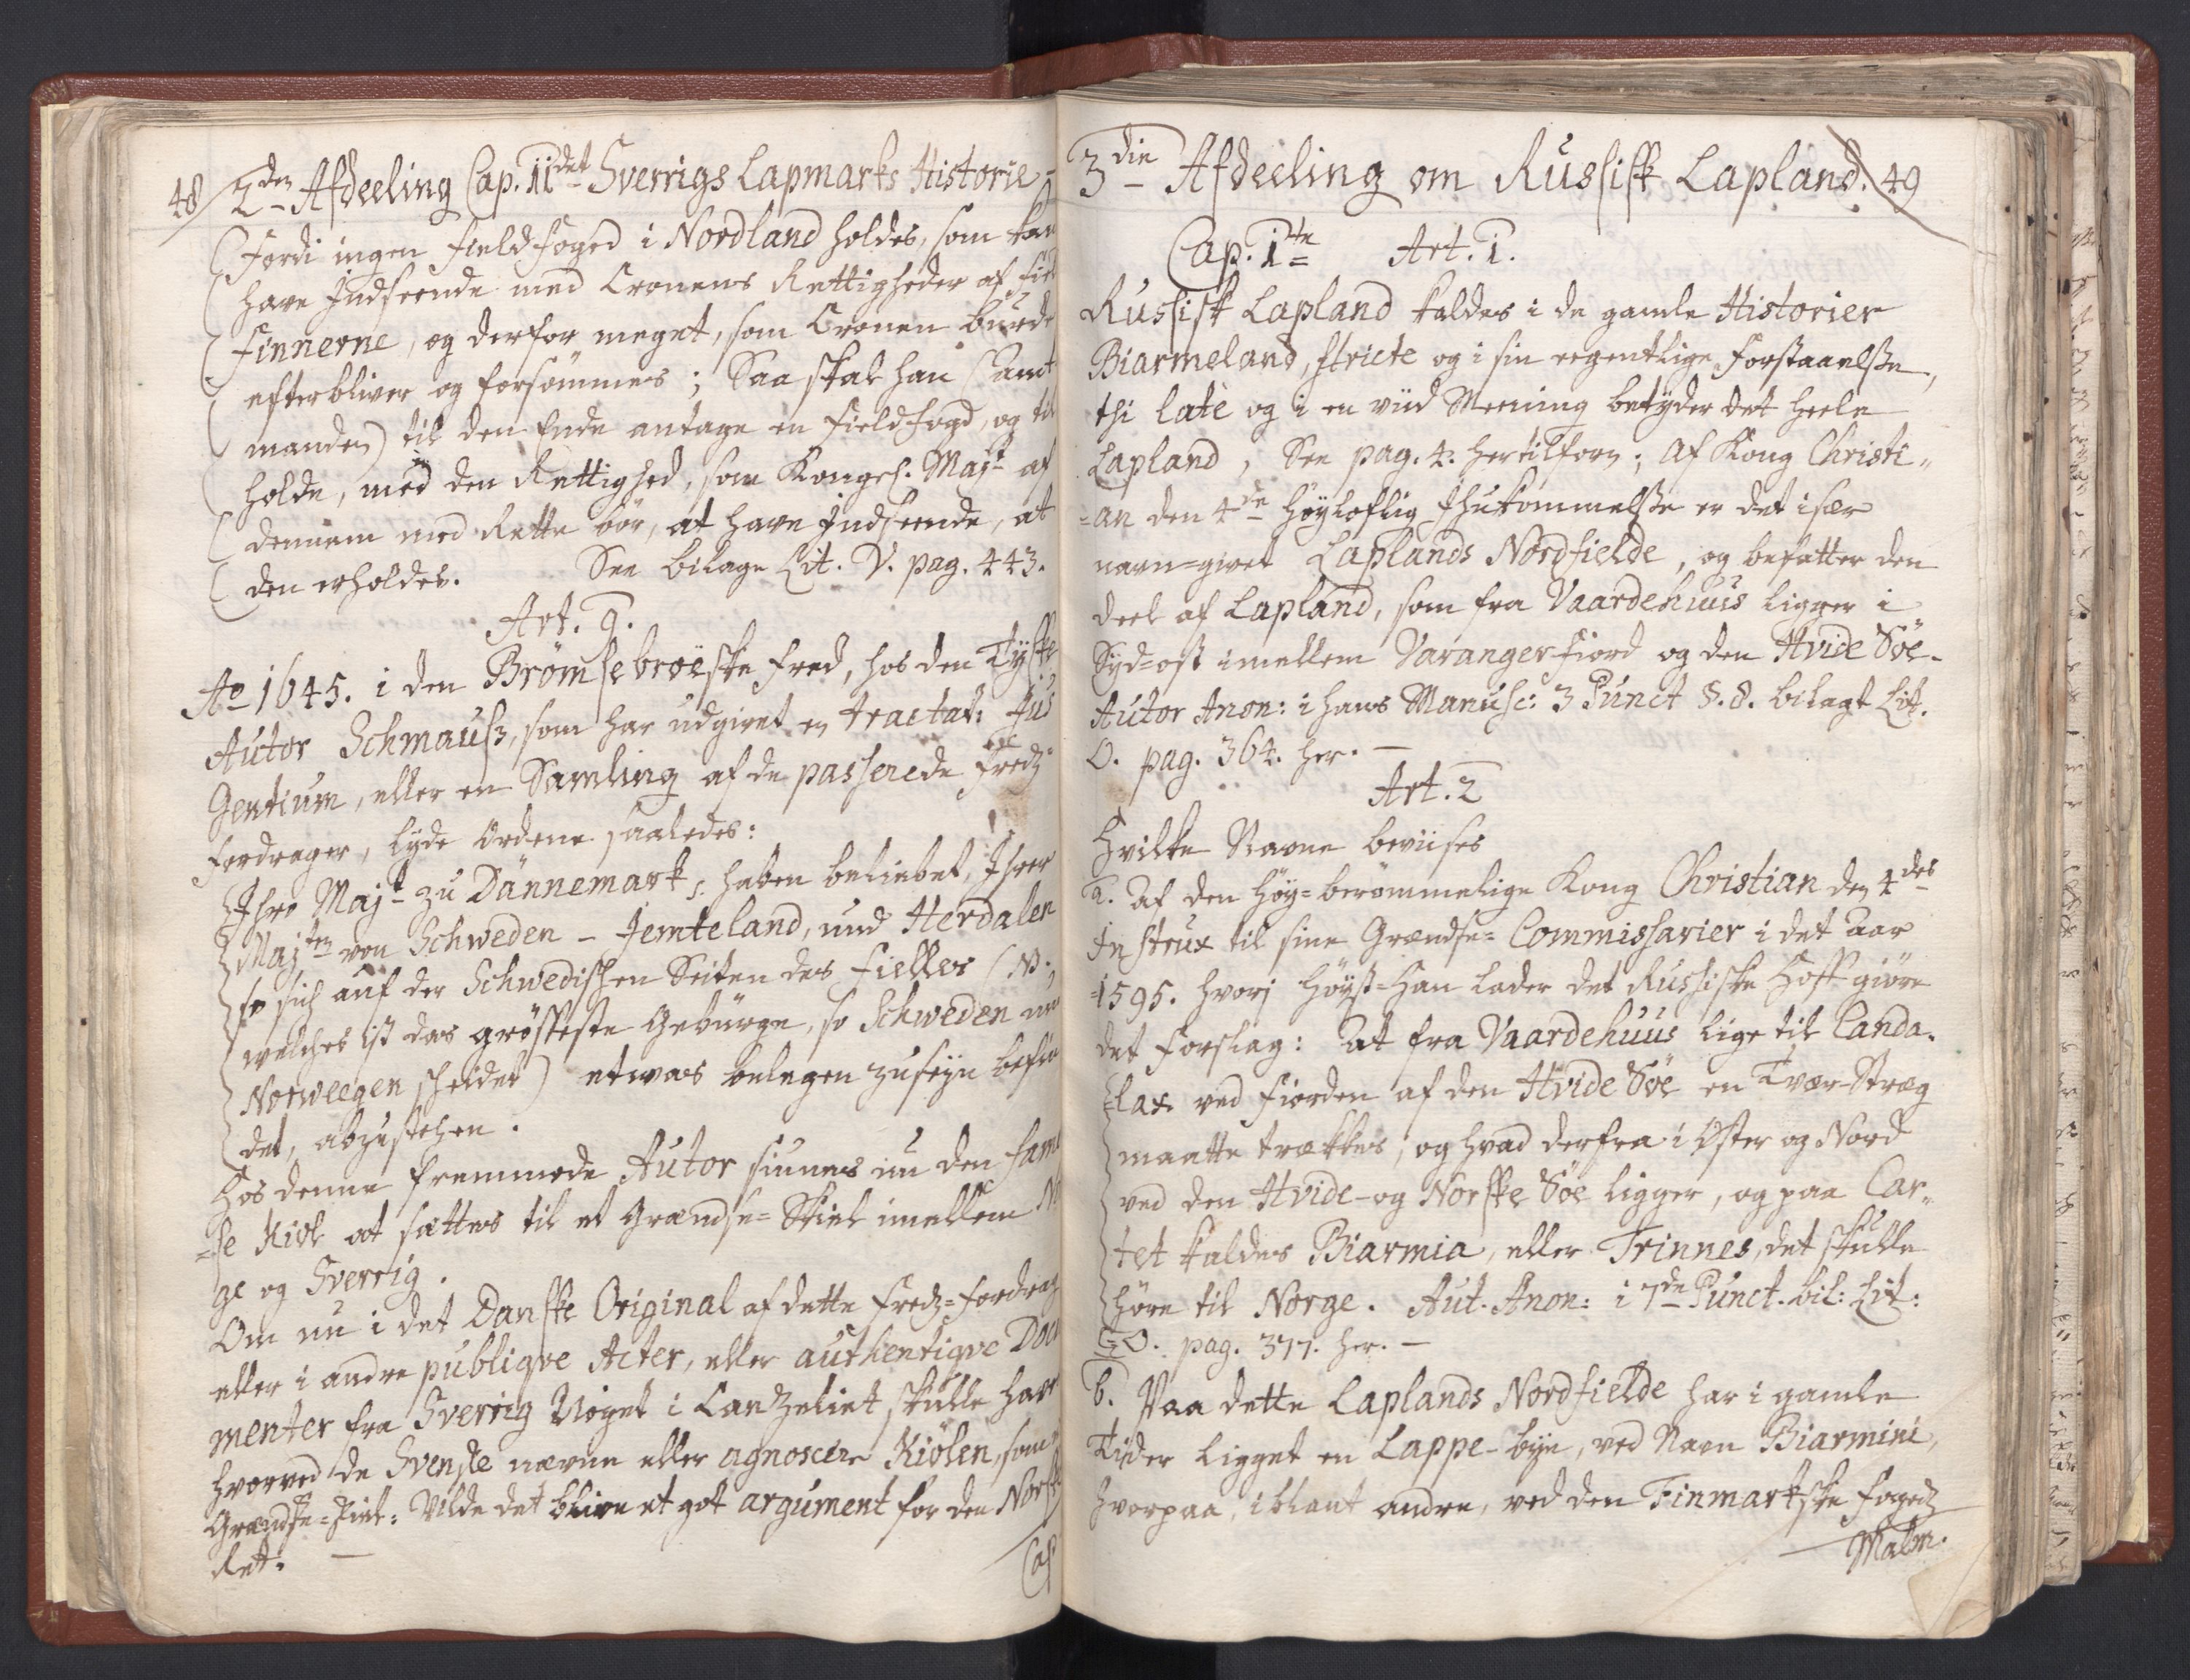 48 2den Afdeeling Cap. 11det Sverrigs Lapmarks Historie
Fordi ingen Field Foged i Nordland holdes, som kan
have Indseende med Cronens Rettigheder af Field
Finnerne, og derfor meget, som Cronen burde
efterbliver og forsömmes; Saa skal han (Amt
manden) til den Ende antage en Fieldfogd, og til
holde, med den Rettighed, som Kongel. Majt af
dennem med Rette bör, at have Indseende, at
den erholdes. See bilage Lit. V. pag. 443.
Art. 9.
Ao 1645. i den Brömsebroëske Fred, hos den Tyske
Autor Schmauss, som har udgivet en tractat: Jus
Gentium, eller en Samling af de passerede Fredz
fordrager, lyde Ordene saaledes:
Ihro Majt zu Dännemark, haben beliebet, Ihrer
Majten von Schweden - Jemteland, und Herdalen
so sich auf der Schwedischen Seiten des Fielles (NB.
welches ist das grösseste Gebürge, so Schweden und
Norweegen scheidet) etwas belegen zuseyn befin
det, abzustehen.
Hos denne fremmede Autor finnes nu den sam
=se Kiöl at sættes til et Grændse-Skiel imellem Nor
ge og Sverrig.
Om nu i det Danske Original af dette Fredz-fordrag
eller i andre publiqve Acter, eller authentiqve Docu
menter fra Sverrig Noget i Canzeliet skulle have
hvorved de Svenske nævne eller agnoscere Kiölen, som
Grændse-Skiel: Vilde det blive et got argument for den Norske
Ret. —
Cap
3die Afdeeling om Russisk Lapland. 49
Cap. 1te Art. 1.
Russisk Lapland kaldes i de gamle Historier
Biarmeland, stricte og i sin egentlige Forstaaelsse,
thi latè og i en viid Meening betyder det heele
Lapland, See pag. 4. hertilforn; af Kong Christi„
=an den 4de Höyloflig Ihukommelsse er det især
navn=givet Laplands Nordfielde, og befatter den
deel af Lapland, som fra Vaardehuus ligger i
Syd=ost imellem Varanger Fiord og den Hvide Söe.
Autor Anon: i hans Manusc: 3 Punct §. 8. bilagt Lit.
O. pag. 364. her. —
Art. 2
Hvilke Navne beviises
a. Af den Höy=berömmelige Kong Christian den 4des
Instrux til sine Grændse= Commissarier i det Aar
1595. hvorj Höyst=Han lader det Russiske Hoff giöre
det Forslag: At fra Vaardehuus lige til Canda.
=lax ved Fiorden af den Hvide Söe en Tvær-Stræg
maatte trækkes, og hvad derfra i Öster og Nord
ved den Hvide- og Norske Söe ligger, og paa Car„
tet kaldes Biarmia, eller Trinnes, det skulle
höre til Norge. Aut. Anon: i 7de Punct. bil: Lit:
O. pag. 377. her. —
b. Paa dette Laplands Nordfielde har i gamle
Tiider ligget en Lappe-bye, ved Navn Biarmini,
hvorpaa, iblant andre, ved den Finmarkske Fogedz
Malm.